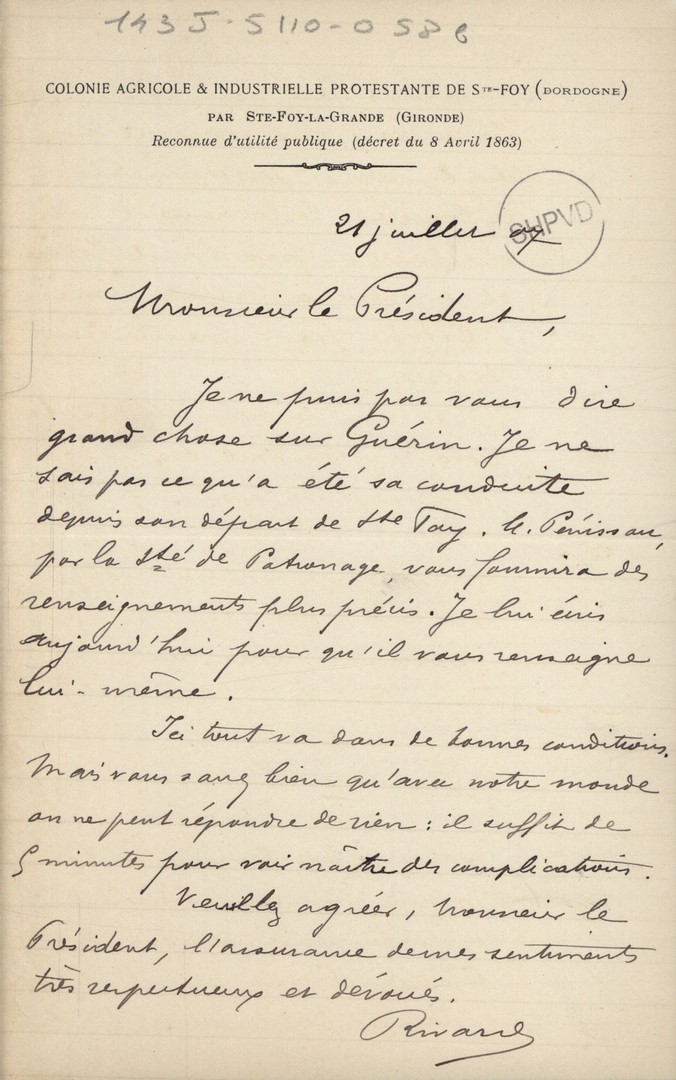 143 J. 5110-058 b
COLONIE AGRICOLE & INDUSTRIELLE PROTESTANTE DE STE-FOY (DORDOGNE)
PAR STE-FOY-LA-GRANDE (GIRONDE)
Reconnue d'utilité publique (décret du 8 Avril 1863)
SHPVD
21 juillet 07
Monsieur le Président,
Je ne puis pas vous dire
grand chose sur Guérin. Je ne
sais pas ce qu'a été sa conduite
depuis son départ de Ste Foy. M. Pénissou,
par la Sté de Patronage, vous fournira des
renseignements plus précis. Je lui écris
aujourd'hui pour qu'il vous renseigne
lui-même.
Ici tout va dans de bonnes conditions.
Mais vous savez bien qu'avec notre monde
on ne peut répondre de rien : il suffit de
5 minutes pour voir naître des complications.
Veuillez agréer, Monsieur le
Président, l'assurance de mes sentiments
très respectueux et dévoués.
Rivard